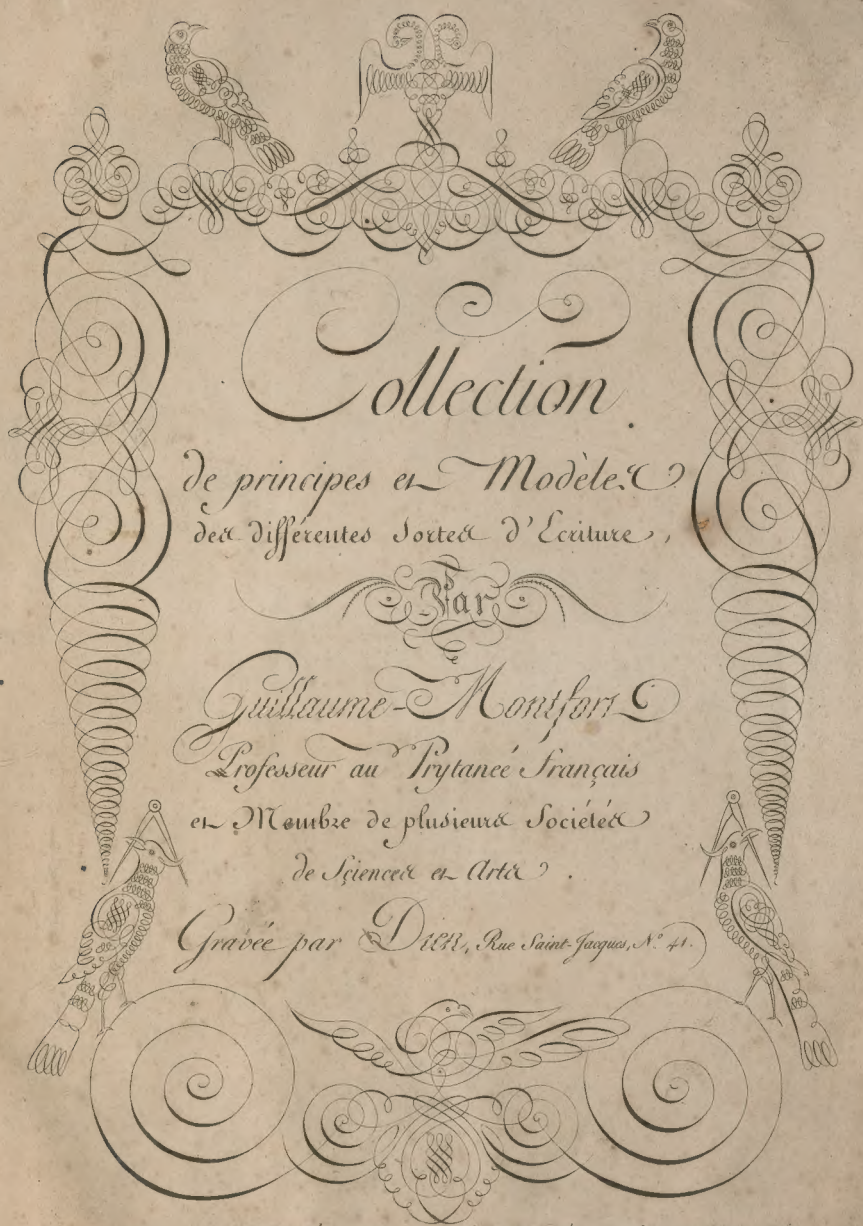 Collection
de principes et Modèles
des différentes Sortes d'Ecriture,
Par
Guillaume-Montfort
Professeur au Prytaneé Français
et Membre de plusieurs Sociétés
de Sciences et Arts.
Gravée par Dien, Rue Saint-Jacques, N.º 41.